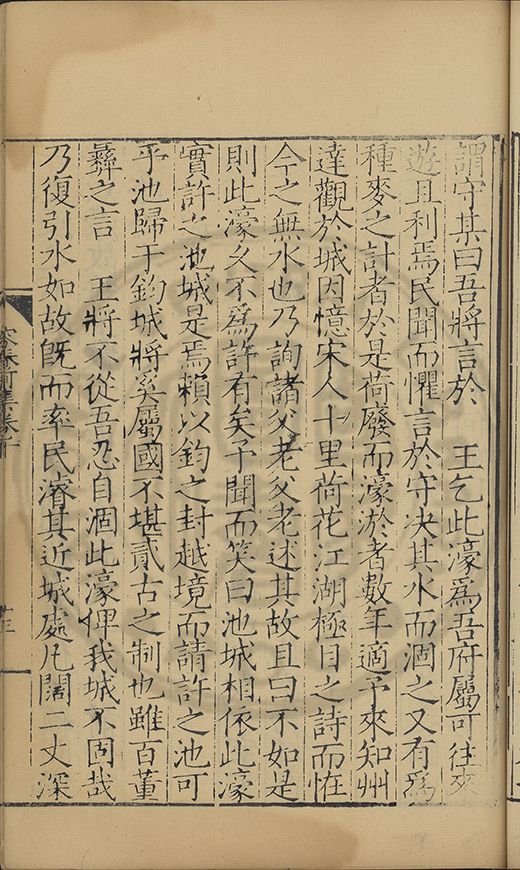 謂守其曰吾將言於　王乞此濠爲吾府屬可往來
遊且利焉民聞而懼言於守决其水而涸之又有爲
種麥之計者於是荷廢而濠淤者數年適予來知州
達觀於城因憶宋人十里荷花江湖極目之詩而恠
今之無水也乃詢諸父老父老述其故且曰不如是
則此濠久不爲許有矣予聞而笑曰池城相依此濠
實許之池城是焉賴以鈞之封越境而請許之池可
乎池歸于鈞城將奚屬國不堪貳古之制也雖百董
彝之言　王將不從吾忍自涸此濠俾我城不固哉
乃復引水如故旣而率民濬其近城處凡闊二丈深